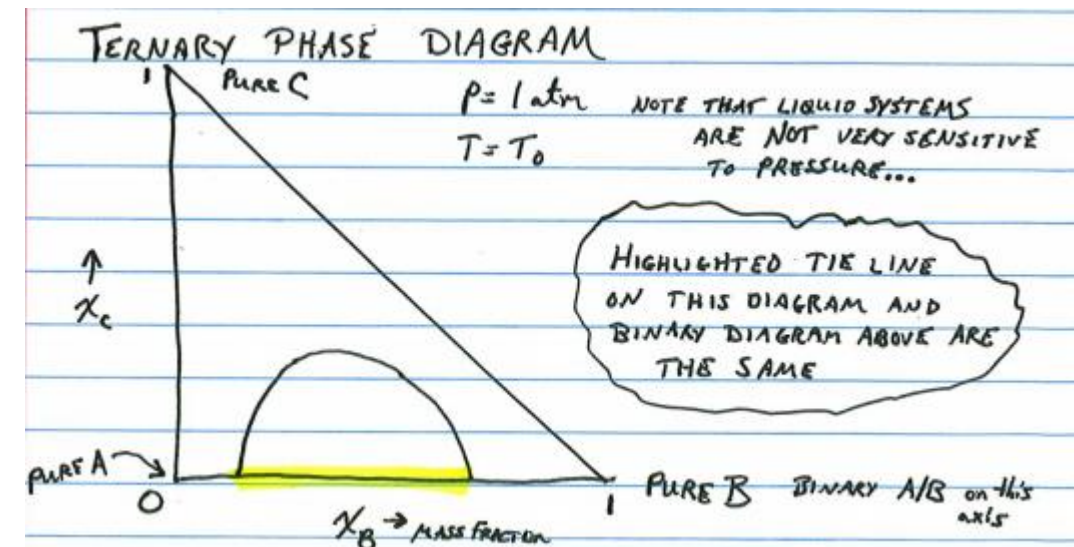 TERNARY PHASE DIAGRAM
1
PURE C
P = 1 atm
T = T₀
NOTE THAT LIQUID SYSTEMS
ARE NOT VERY SENSITIVE
TO PRESSURE...
↑
x_c
HIGHLIGHTED TIE LINE
ON THIS DIAGRAM AND
BINARY DIAGRAM ABOVE ARE
THE SAME
PURE A
0
1
PURE B
BINARY A/B on this
axis
x_B → MASS FRACTION